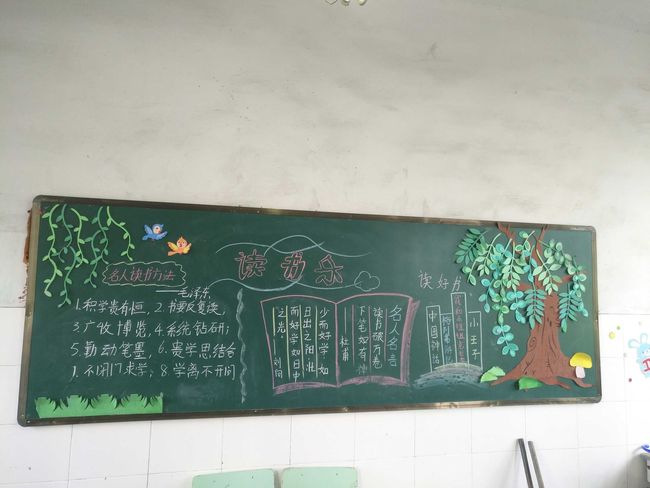 读书乐
名人读书方法
——毛泽东
1.积学贵有恒，2.书要反复读，
3.广收博览，4.系统钻研；
5.勤动笔墨，6.贵学思结合
7.不闭门求学；8.学离不开问
名人名言
读书破万卷
下笔如有神
杜甫
少而好学如
日出之阳壮
而好学如日中
之光
刘向
读好书
小王子
中国神话